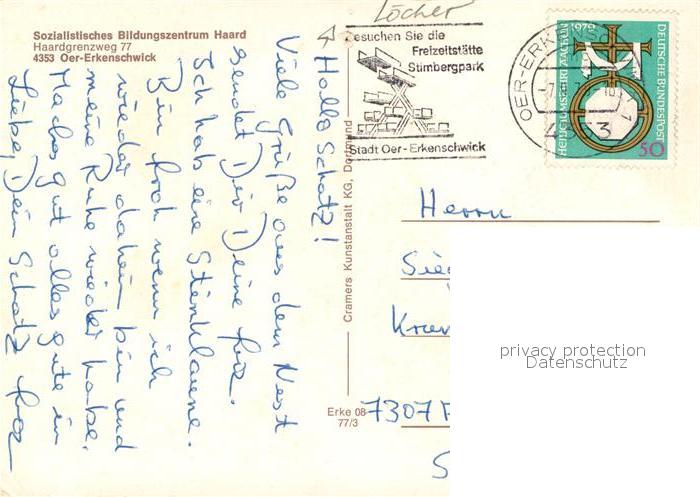 Löcher
Sozialistisches Bildungszentrum Haard
Haardgrenzweg 77
4353 Oer-Erkenschwick
Hallo Schatz!
Viele Grüße aus dem Nest
sendet Dir Deine
Ich hab eine Stinklaune.
Bin froh wenn ich
wieder daheim bin und
meine Ruhe wieder habe.
Machs gut alles gute in
Liebe, Dein Schatz
Cramers Kunstanstalt KG, Dortmund
Erke 08
77/3
esuchen Sie die
Freizeitstätte
Stimbergpark
Stadt Oer-Erkenschwick
OER-ERKENSC
HEILIGTUMSFAHRT AACHEN 1979
DEUTSCHE BUNDESPOST
50
Herrn
7307
privacy protection
Datenschutz